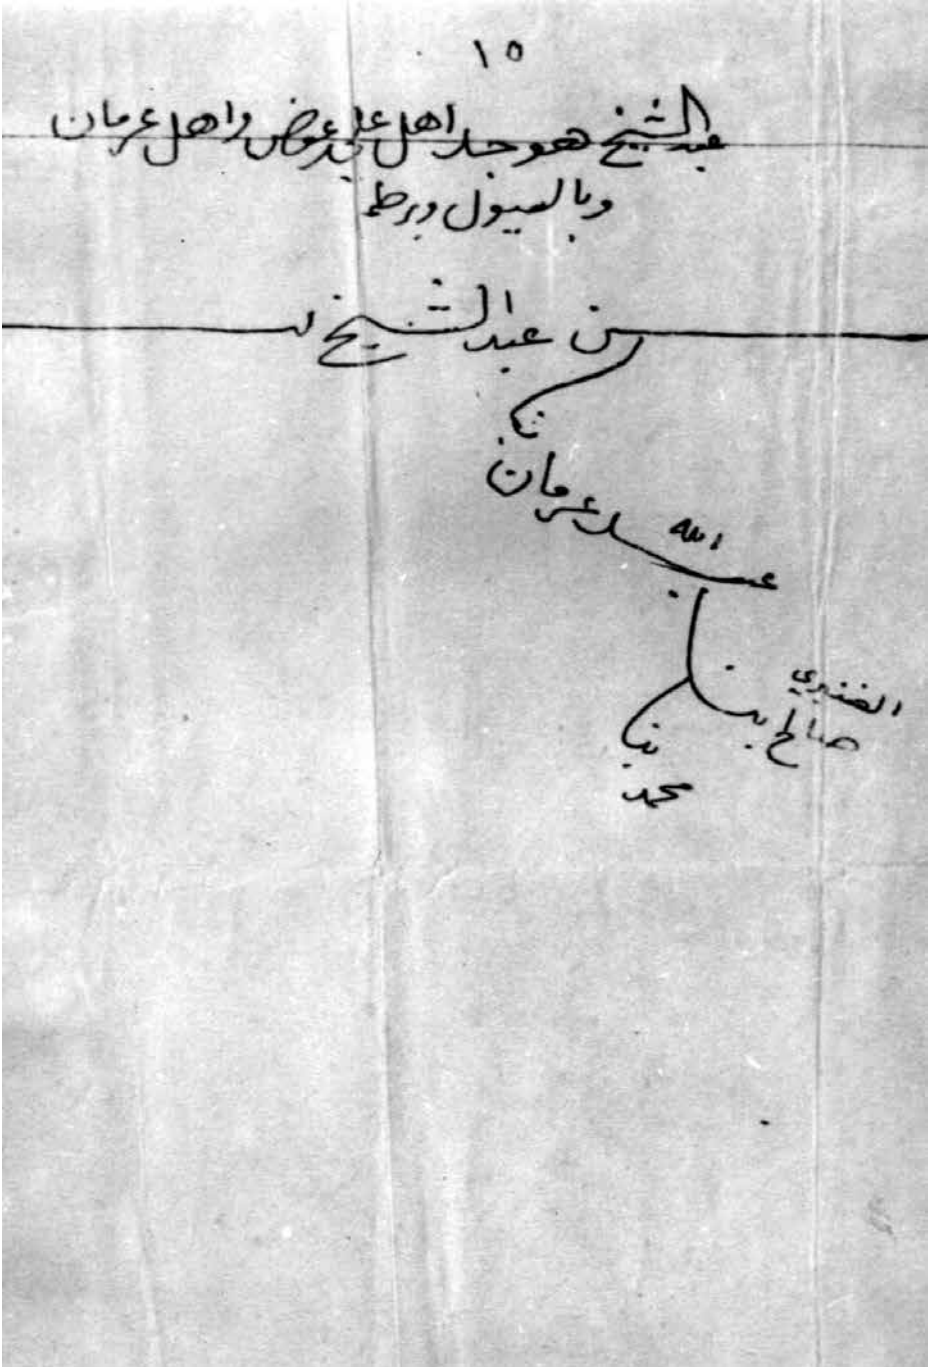 ١٥
عبد الشيخ هو جد اهل علي عوض واهل عرمان
وبالعيول وبرطم
بن عبد الشيخ بن
بن
عرمان
عبد الله بن
الضنبري
صالح بن
بن
محمد